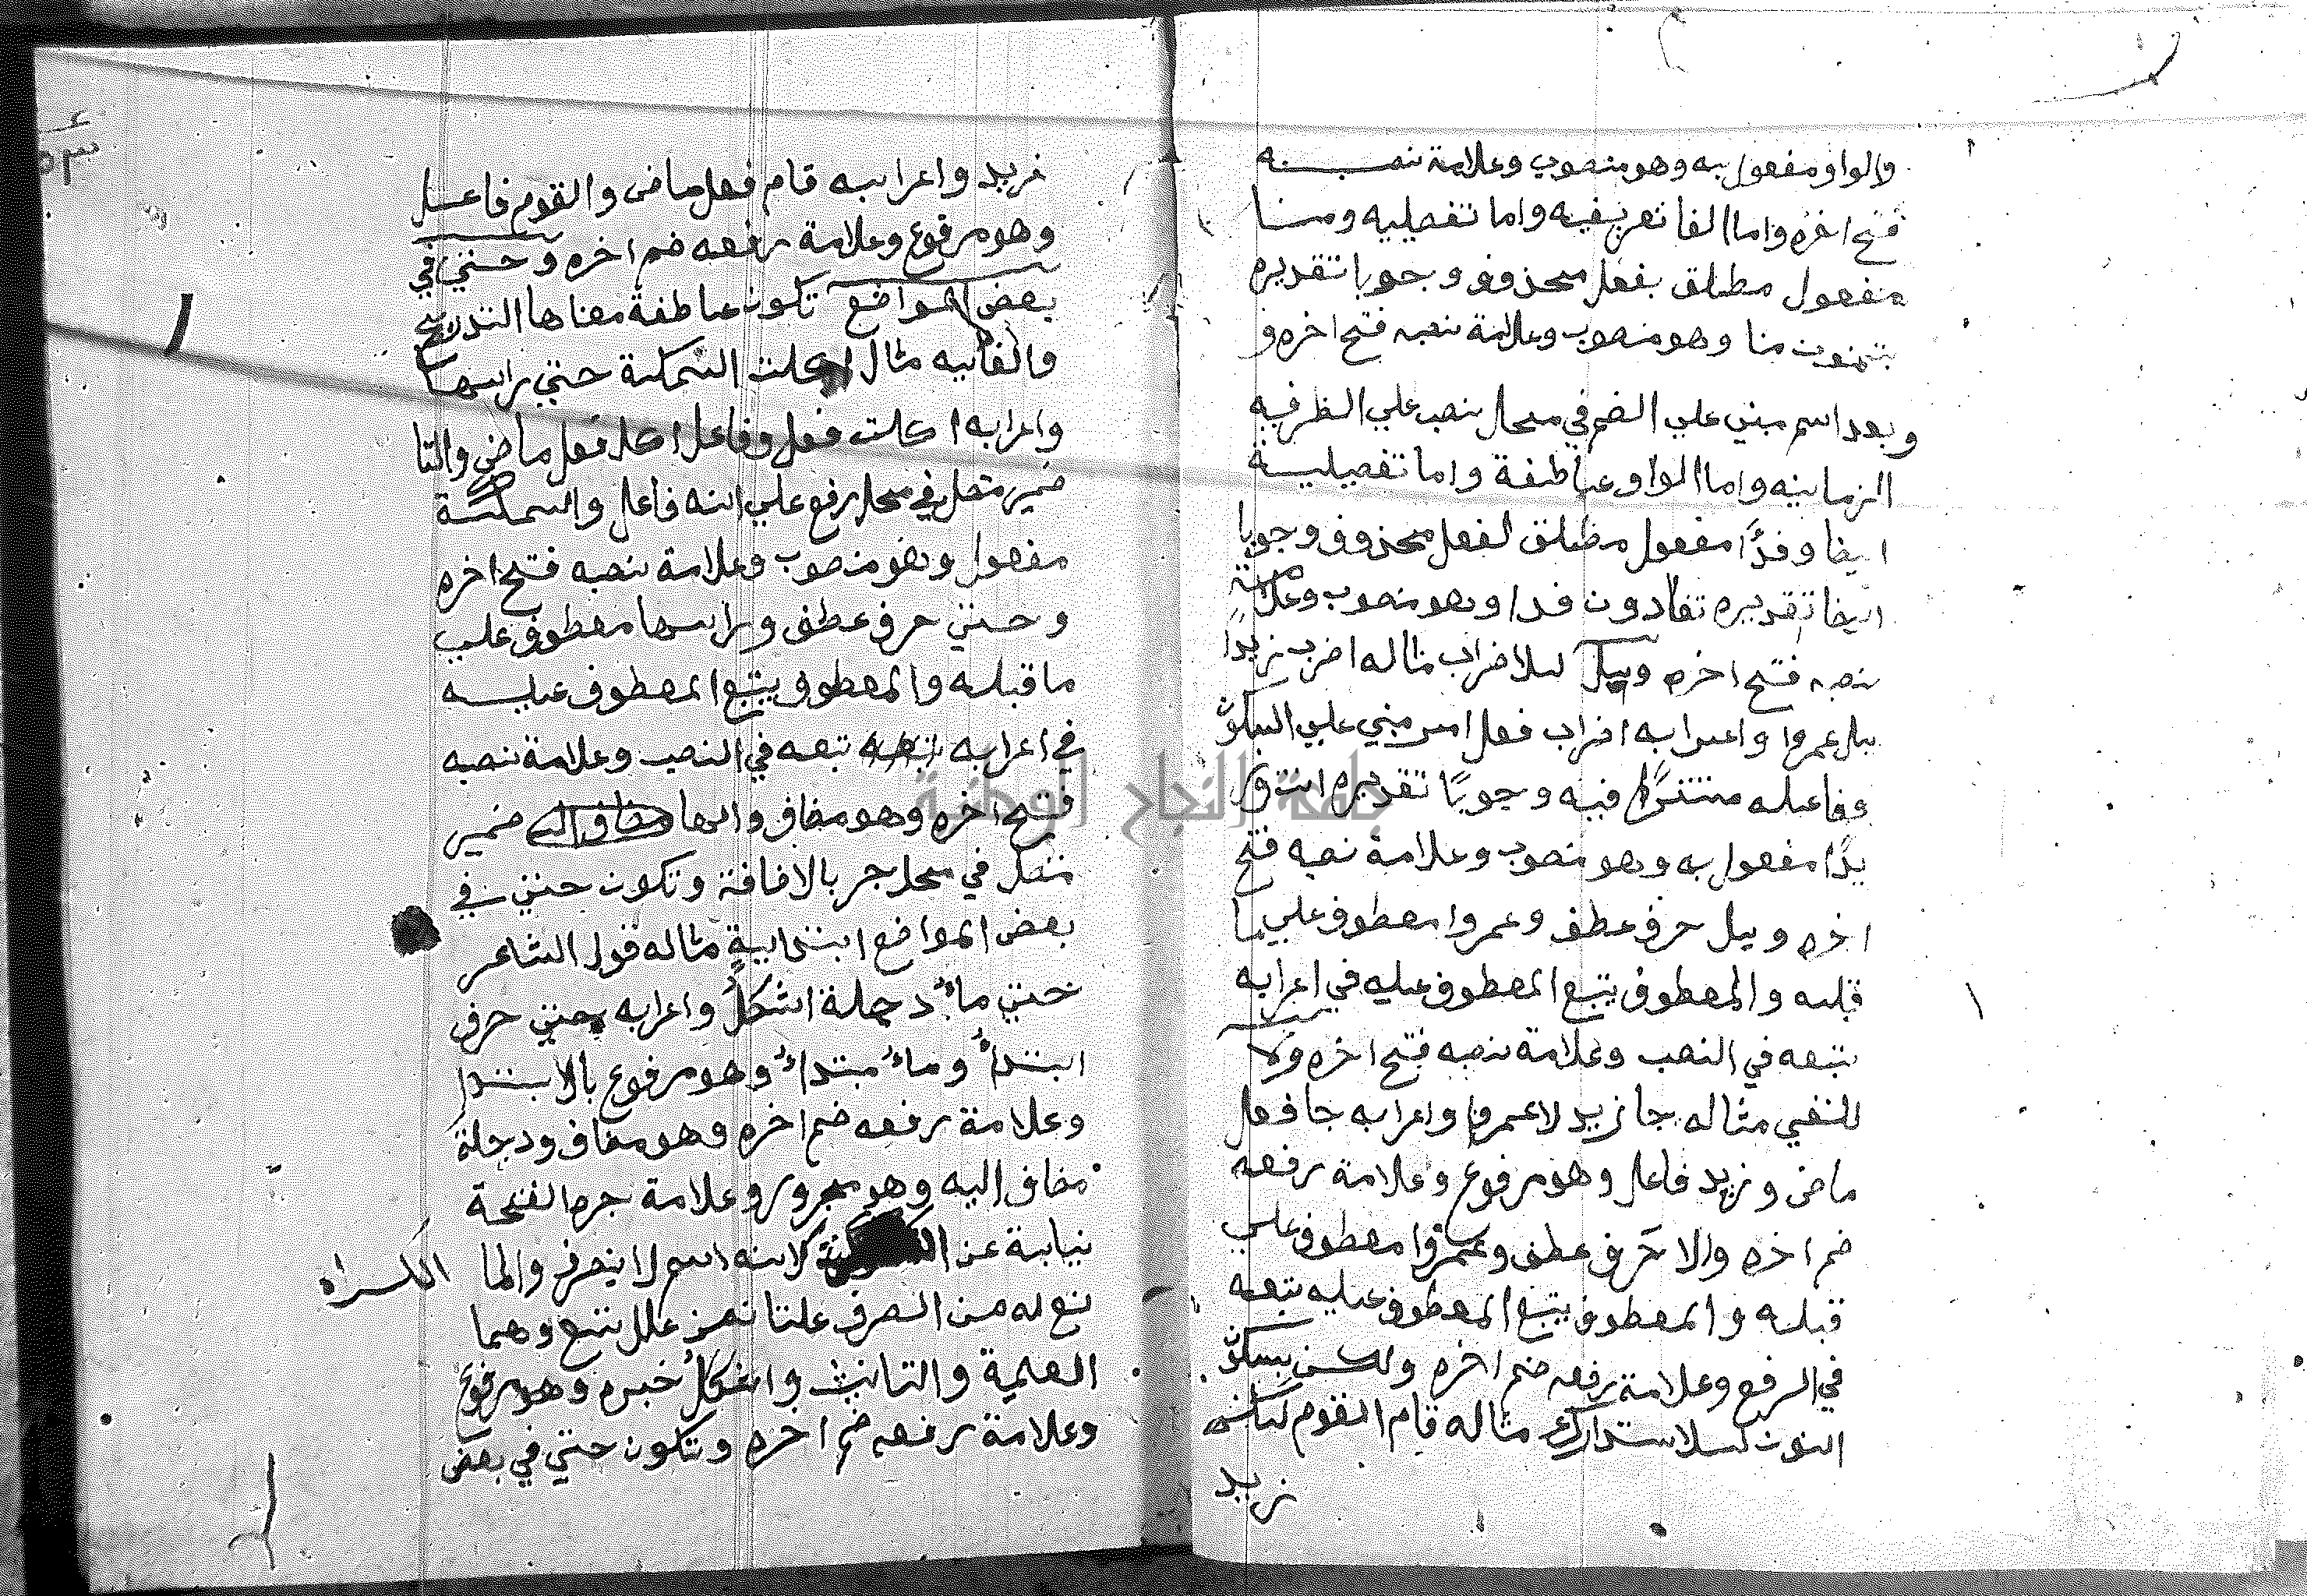 والواو مفعول به وهو منصوب وعلامة نصبه
فتح اخره واما الفا تعريفيه واما تفصيليه ومنا
مفعول مطلق بفعل محذوف وجوبا تقديره
تمنون منا وهو منصوب وعلامة نصبه فتح اخره و
وبعد اسم مبني علي الضم في محل نصب علي الظرفيه
الزمانيه واما الواو عاطفة واما تفصيلية
ايضا وفدًا مفعول مطلق لفعل محذوف وجوبا
ايضا تقديره تفادون فدا وهو منصوب وعلامة
نصبه فتح اخره وبل للاضراب مثاله اضرب زيدًا
بل عمروا واعرابه اضراب فعل امر مبني علي السكون
وفاعله مستترًا فيه وجوبًا تقديره انت وز
يدًا مفعول به وهو منصوب وعلامة نصبه فتح
اخره وبل حرف عطف وعمروا معطوف علي ما
قبله والمعطوف يتبع المعطوف عليه في اعرابه
تبعه في النصب وعلامة نصبه فتح اخره ولا
للنفي مثاله جا زيد لا عمروا واعرابه جا فعل
ماضى وزيد فاعل وهو مرفوع وعلامة رفعه
ضم اخره والا حرف عطف وعمروا معطوف علي
قبله والمعطوف يتبع المعطوف عليه تبعه
في الرفع وعلامة رفعه ضم اخره ولكن بسكون
النون للاستدارك مثاله قام القوم لكن
زيد
زيد واعرابه قام فعل ماضى والقوم فاعل
وهو مرفوع وعلامة رفعه ضم اخره وحتي في
بعض المواضع تكون عاطفة معناها التدريج
والغايه مثال اكلت السمكة حتي راسها
واعرابه اكلت فعل وفاعل اكل فعل ماضي والتا
ضمير متصل في محل رفع علي انه فاعل والسمكة
مفعول وهو منصوب وعلامة نصبه فتح اخره
وحتي حرف عطف وراسها معطوف علي
ما قبله والمعطوف يتبع المعطوف عليه
في اعرابه تبعه في النصب وعلامة نصبه
فتح اخره وهو مضاف والها مضاف اليه ضمير
متصل في محل جر بالاضافة وتكون حتي في
بعض المواضع ابتدايية مثاله قول الشاعر
حتي ماءُ دجلة اشكلُ واعرابه حتي حرف
ابتداءٌ وماءُ مبتداءٌ وهو مرفوع بالابتدا
وعلامة رفعه ضم اخره وهو مضاف ودجلة
مضاف اليه وهو مجرور وعلامة جره الفتحة
نيابة عن لانه اسم لا ينصرف والما الكسراه
نع له من الصرف علتان من علل تسع وهما
العلمية والتانيث واشكلُ خبره وهو مرفوع
وعلامة رفعه ضم اخره وتكون حتي في بعض
جامعة النجاح الوطنية